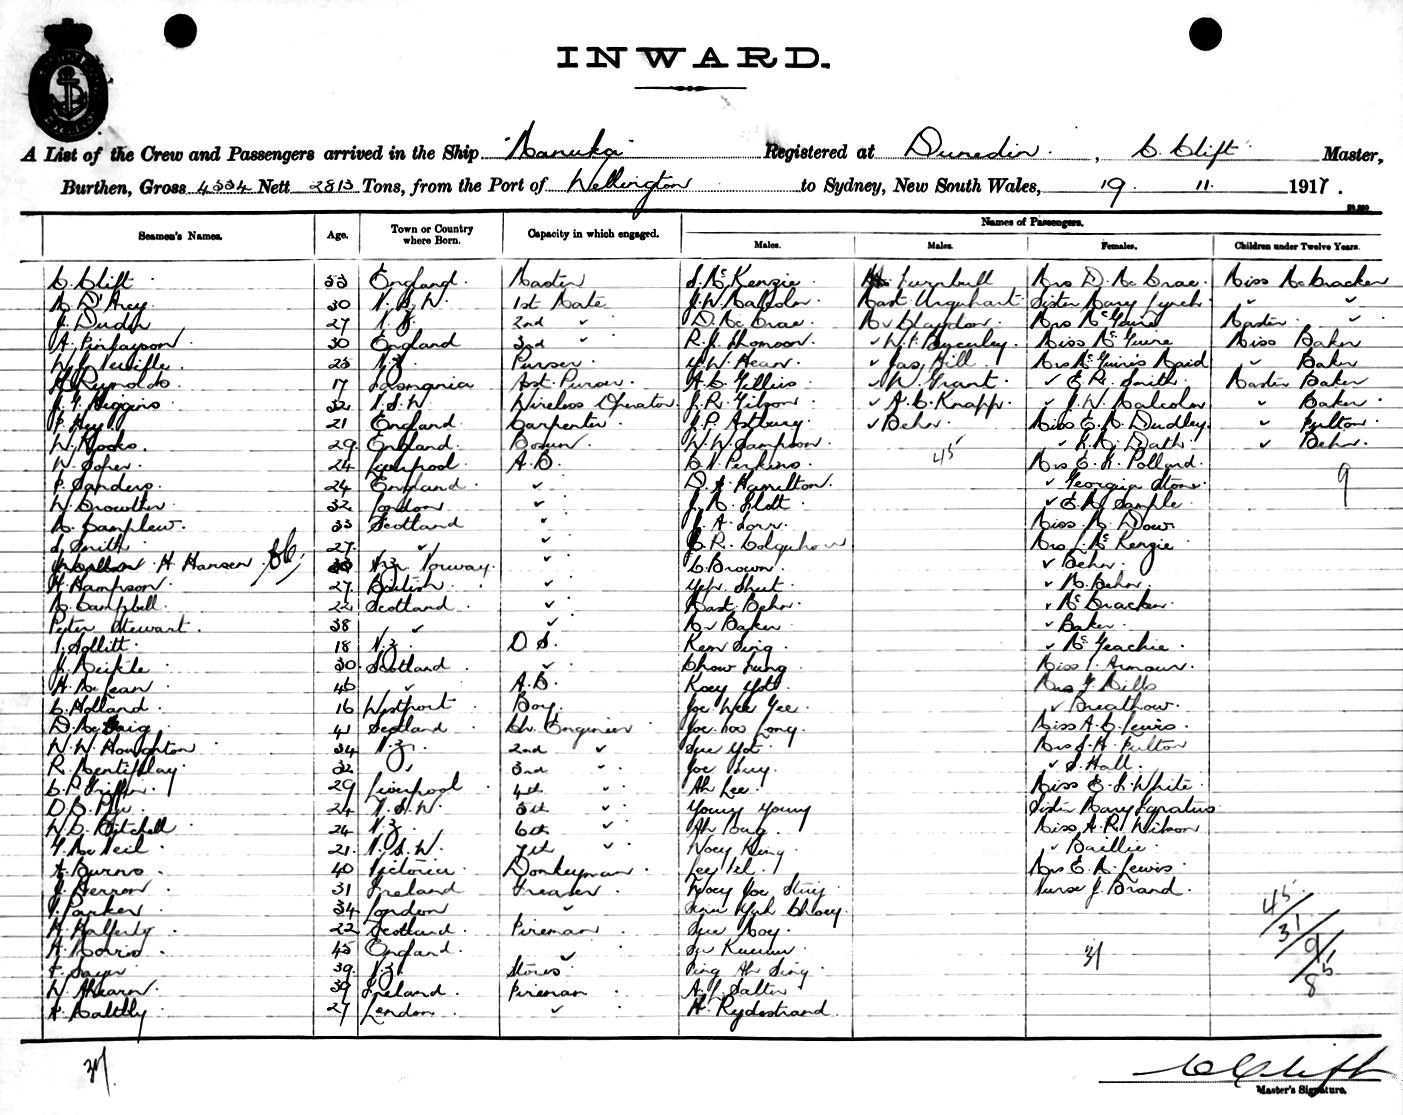 INWARD.
A List of the Crew and Passengers arrived in the Ship "Manuka" Registered at Dunedin. , C. Clift Master,
Burthen, Gross 4534 Nett 2813 Tons, from the Port of Wellington to Sydney, New South Wales, 19 11. 1917.
Names of Passengers.
Seamen's Names. Age. Town or Country where Born. Capacity in which engaged. Males. Males. Females. Children under Twelve Years.
C. Clift 53 England. Master S. McKenzie Turnbull Mrs D. McCrae. Miss McCracken
M. D'Arcy 30 N.S.W. 1st Mate J. W. Malcolm Mast. Urquhart Sister Mary Lynch " "
J. Dudh 27 N.Z. 2nd " D. McCrae Mr Blaydon. Mrs McGuire Master "
A. Finlayson 30 England 3rd " R. J. Thomson " W. F. Miss McGuire Miss Baker
25 N.Z. Purser W. Hean " Jas. Hill Mrs McGuire's Maid " Baker
Reynolds 17 Tasmania Asst. Purser. A. C. Gillies " W. Grant " E. R. Smith Master Baker
J. Y. Higgins 32 N.S.W Wireless Operator. J. R. Gibson " A. C. Knapp. " J. W. Malcolm " Baker
F. Hey 21 England Carpenter J. P. Astbury " Behr. Miss E. M. Dudley. " Fulton
W. Hooks 29 England Bosun. W. W. Sampson " K. M. Death " Behr.
W. Soper 24 Liverpool A.B. C. N. Perkins 45 Mrs E. K. Pollard.
F. Sanders. 24 England " D. A. Hamilton. " Georgia Stone 9
W. Crowther 32 London " J. M. Stott " E. M. Sample
M. Camplew. 33 Scotland " J. A. Lorr. Miss M. Dow.
J. Smith 27 " " C. R. Colquhoun Mrs J. McKenzie
H. Hansen Norway. " C. Brown. " Behr.
H. Hampson. 27 British " Sheet " M. Behr.
M. Campbell 22 Scotland " Mast. Behr. " McCracken
Peter Stewart. 38 " " Mr Baker " Baker
Sollitt 18 N.Z. O.S. Kem Sing " McGeachie
J. Meikle 30 Scotland " Chow Lung Miss J. Armour.
H. McLean 46 " A.B. Koey Yot Mrs J. Mills
C. Holland. 16 Westport Boy. Joe Wee Gee " Breathow.
D. McCraig 41 Scotland Ch. Engineer Joe Loo Long. Miss A. C. Lewis
W. W. Houghton 34 N.Z. 2nd " Sue Yot Mrs S. H. Fulton
R. Mentiplay 32 " 3rd " Joe Suey " S. Hall.
C. P. Griffin 29 Liverpool 4th " Ah Lee Miss E. L. White
D. B. Pye 24 N.S.W. 5th " Young Young Sister Mary Ignatius
W. C. Mitchell 24 N.Z. 6th " Ah Miss A. R. Wilson
G. McNeil 21. N.S.W. 7th " Woey King " Baillie
A. Burns 40 Victoria Donkeyman. Lee Mrs E. M. Lewis
J. Herron 31 Ireland Greaser Woey Joe Nurse J. Brand
Parker 34 London " 45
H. Rafferty 22 Scotland. Fireman Sue 31
A. Morris 45 England " 31 9
F. Sayer 39. N.Z. Stores Ping Ah Sing 85
W. Ahearn. 39 Ireland. Fireman A. J. Salter
A. Maltby 27 London " A. Rydestrand.
37
C. Clift
Master's Signature.